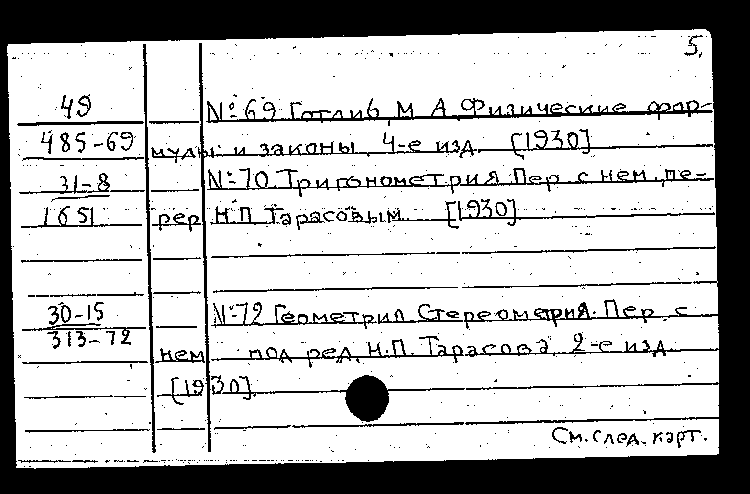 5.
49 №69 Готлиб, М. А. Физические фор-
485-69 мулы и законы. 4-е изд. [1930]
31-8 №70 Тригонометрия. Пер. с нем. пе-
1651 рер. Н.П. Тарасовым. [1930]
30-15 №72 Геометрия. Стереометрия. Пер. с
313-72 нем. под ред. Н.П. Тарасова, 2-е изд.
[1930].
См. след. карт.